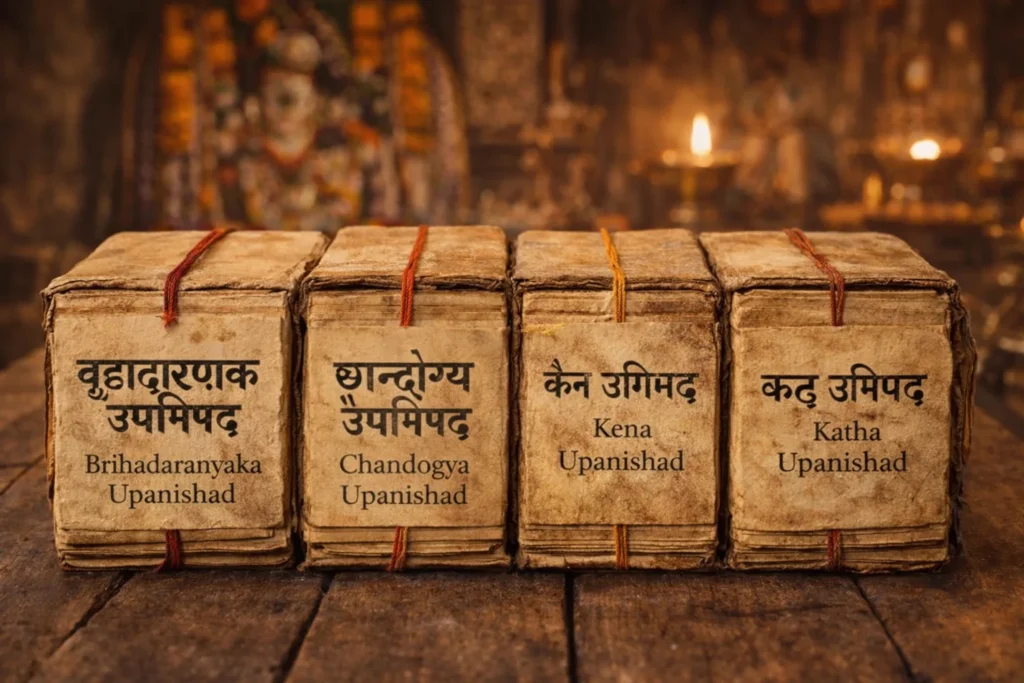 वृहादारणक
उपमिपद
Brihadaranyaka
Upanishad
छान्दोग्य
उपमिपद
Chandogya
Upanishad
कैन उगिमद
Kena
Upanishad
कद् उमिपद
Katha
Upanishad